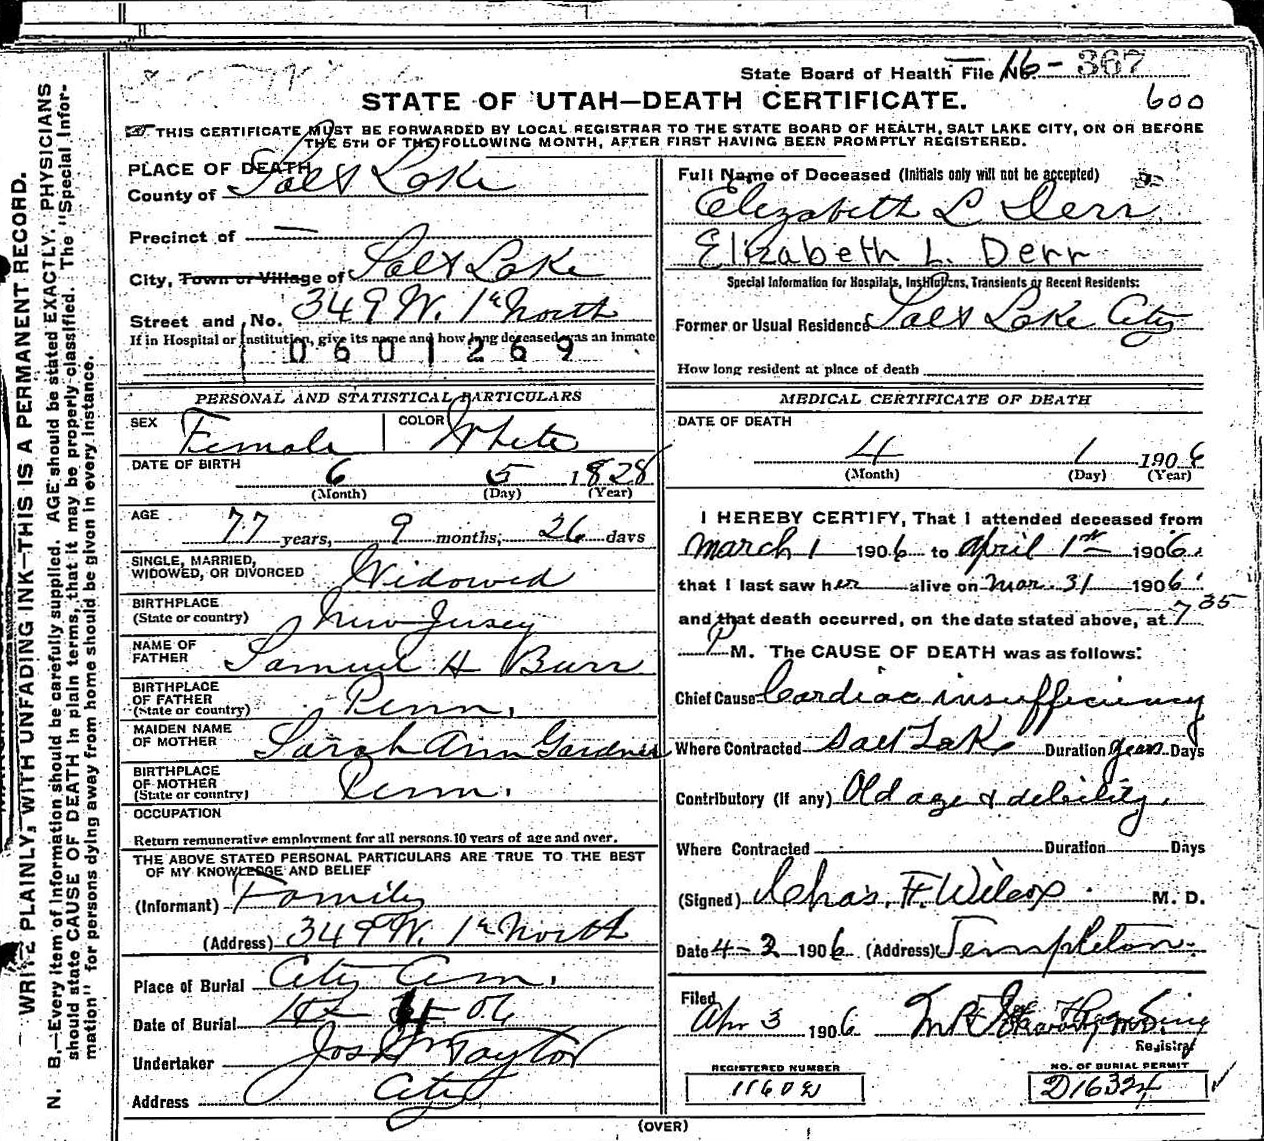 State Board of Health File No. 16- 367
STATE OF UTAH—DEATH CERTIFICATE.
600
THIS CERTIFICATE MUST BE FORWARDED BY LOCAL REGISTRAR TO THE STATE BOARD OF HEALTH, SALT LAKE CITY, ON OR BEFORE
THE 5TH OF THE FOLLOWING MONTH, AFTER FIRST HAVING BEEN PROMPTLY REGISTERED.
PLACE OF DEATH
County of Salt Lake
Precinct of —
City, Town or Village of Salt Lake
Street and No. 349 W. 1st North
If in Hospital or Institution, give its name and how long deceased was an inmate
0601269
PERSONAL AND STATISTICAL PARTICULARS
SEX Female COLOR White
DATE OF BIRTH 6 5 1828
(Month) (Day) (Year)
AGE 77 years, 9 months, 26 days
SINGLE, MARRIED,
WIDOWED, OR DIVORCED Widowed
BIRTHPLACE
(State or country) New Jersey
NAME OF
FATHER Samuel H Burr
BIRTHPLACE
OF FATHER
(State or country) Penn.
MAIDEN NAME
OF MOTHER Sarah Ann Gardner
BIRTHPLACE
OF MOTHER
(State or country) Penn.
OCCUPATION
Return remunerative employment for all persons 10 years of age and over.
THE ABOVE STATED PERSONAL PARTICULARS ARE TRUE TO THE BEST
OF MY KNOWLEDGE AND BELIEF
(Informant) Family
(Address) 349 W. 1st North
Place of Burial City Cem.
Date of Burial 4 06
Undertaker Jos Taylor
Address City
Full Name of Deceased (Initials only will not be accepted)
Elizabeth L Derr
Elizabeth L. Derr
Special Information for Hospitals, Institutions, Transients or Recent Residents:
Former or Usual Residence Salt Lake City
How long resident at place of death
MEDICAL CERTIFICATE OF DEATH
DATE OF DEATH
4 1 1906
(Month) (Day) (Year)
I HEREBY CERTIFY, That I attended deceased from
March 1 1906 to April 1st 1906.
that I last saw her alive on Mar. 31 1906.
and that death occurred, on the date stated above, at 7 35
P M. The CAUSE OF DEATH was as follows:
Chief Cause Cardiac insufficiency
Where Contracted Salt Lake Duration years Days
Contributory (if any) Old age & debility.
Where Contracted Duration Days
(Signed) Chas. F. Wilcox M. D.
Date 4-2 1906 (Address) Templeton
Filed
Apr 3 1906
Registrar
REGISTERED NUMBER
NO. OF BURIAL PERMIT
D16334
(OVER)
WRITE PLAINLY, WITH UNFADING INK—THIS IS A PERMANENT RECORD.
N. B.—Every item of information should be carefully supplied. AGE should be stated EXACTLY. PHYSICIANS
should state CAUSE OF DEATH in plain terms, that it may be properly classified. The "Special Infor-
mation" for persons dying away from home should be given in every instance.